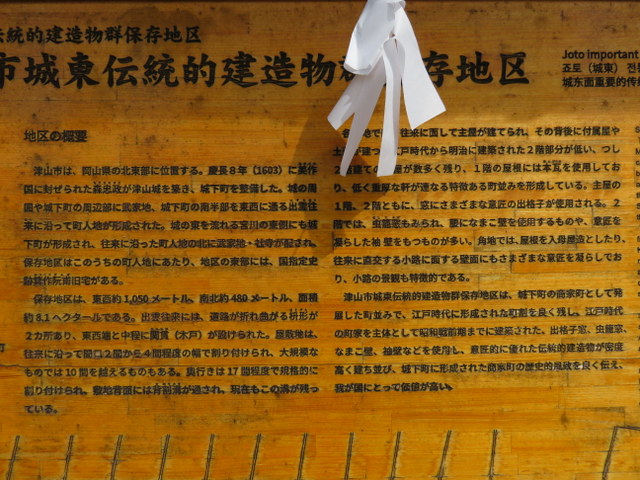 伝統的建造物群保存地区
市城東伝統的建造物群 存地区
Joto Important
죠토（城東） 전통
城东面重要的传统
地区の概要
津山市は、岡山県の北東部に位置する。慶長８年（1603）に美作
国に封ぜられた森忠政が津山城を築き、城下町を整備した。城の周
囲や城下町の周辺部に武家地、城下町の南半部を東西に通る出雲往
来に沿って町人地が形成された。城の東を流れる宮川の東側にも城
下町が形成され、往来に沿った町人地の北に武家地・社寺が配され、
保存地区はこのうちの町人地にあたり、地区の東部には、国指定史
跡箕作阮甫旧宅がある。
保存地区は、東西約1,050メートル、南北約480メートル、面積
約8.1ヘクタールである。出雲往来には、道路が折れ曲がる枡形が
２カ所あり、東西端と中程に関貫（木戸）が設けられた。屋敷地は、
往来に沿って間口２間から４間程度の幅で割り付けられ、大規模な
ものでは10間を越えるものもある。奥行きは17間程度で規格的に
割り付けられ、敷地背面には背割溝が通され、現在もこの溝が残っ
ている。
各 地で 往来に面して主屋が建てられ、その背後に付属屋や
土 が建つ 江戸時代から明治に建築された２階部分が低い、つし
２ 建ての 屋が数多く残り、１階の屋根には本瓦を使用してお
り、低く重厚な軒が連なる特徴ある町並みを形成している。主屋の
１階、２階ともに、窓にさまざまな意匠の出格子が使用される。２
階では、虫籠窓もみられ、壁になまこ壁を使用するものや、意匠を
凝らした袖壁をもつものが多い。角地では、屋根を入母屋造としたり、
往来に直交する小路に面する壁面にもさまざまな意匠を凝らしてお
り、小路の景観も特徴的である。
津山市城東伝統的建造物群保存地区は、城下町の商家町として発
展した町並みで、江戸時代に形成された町割を良く残し、江戸時代
の町家を主体として昭和戦前期までに建築された、出格子窓、虫籠窓、
なまこ壁、袖壁などを使用し、意匠的に優れた伝統的建造物が密度
高く建ち並び、城下町に形成された商家町の歴史的風致を良く伝え、
我が国にとって価値が高い。